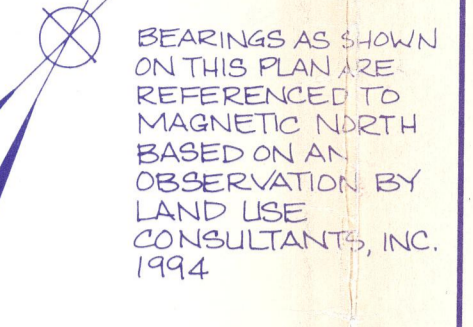 BEARINGS AS SHOWN
ON THIS PLAN ARE
REFERENCED TO
MAGNETIC NORTH
BASED ON AN
OBSERVATION BY
LAND USE
CONSULTANTS, INC.
1994